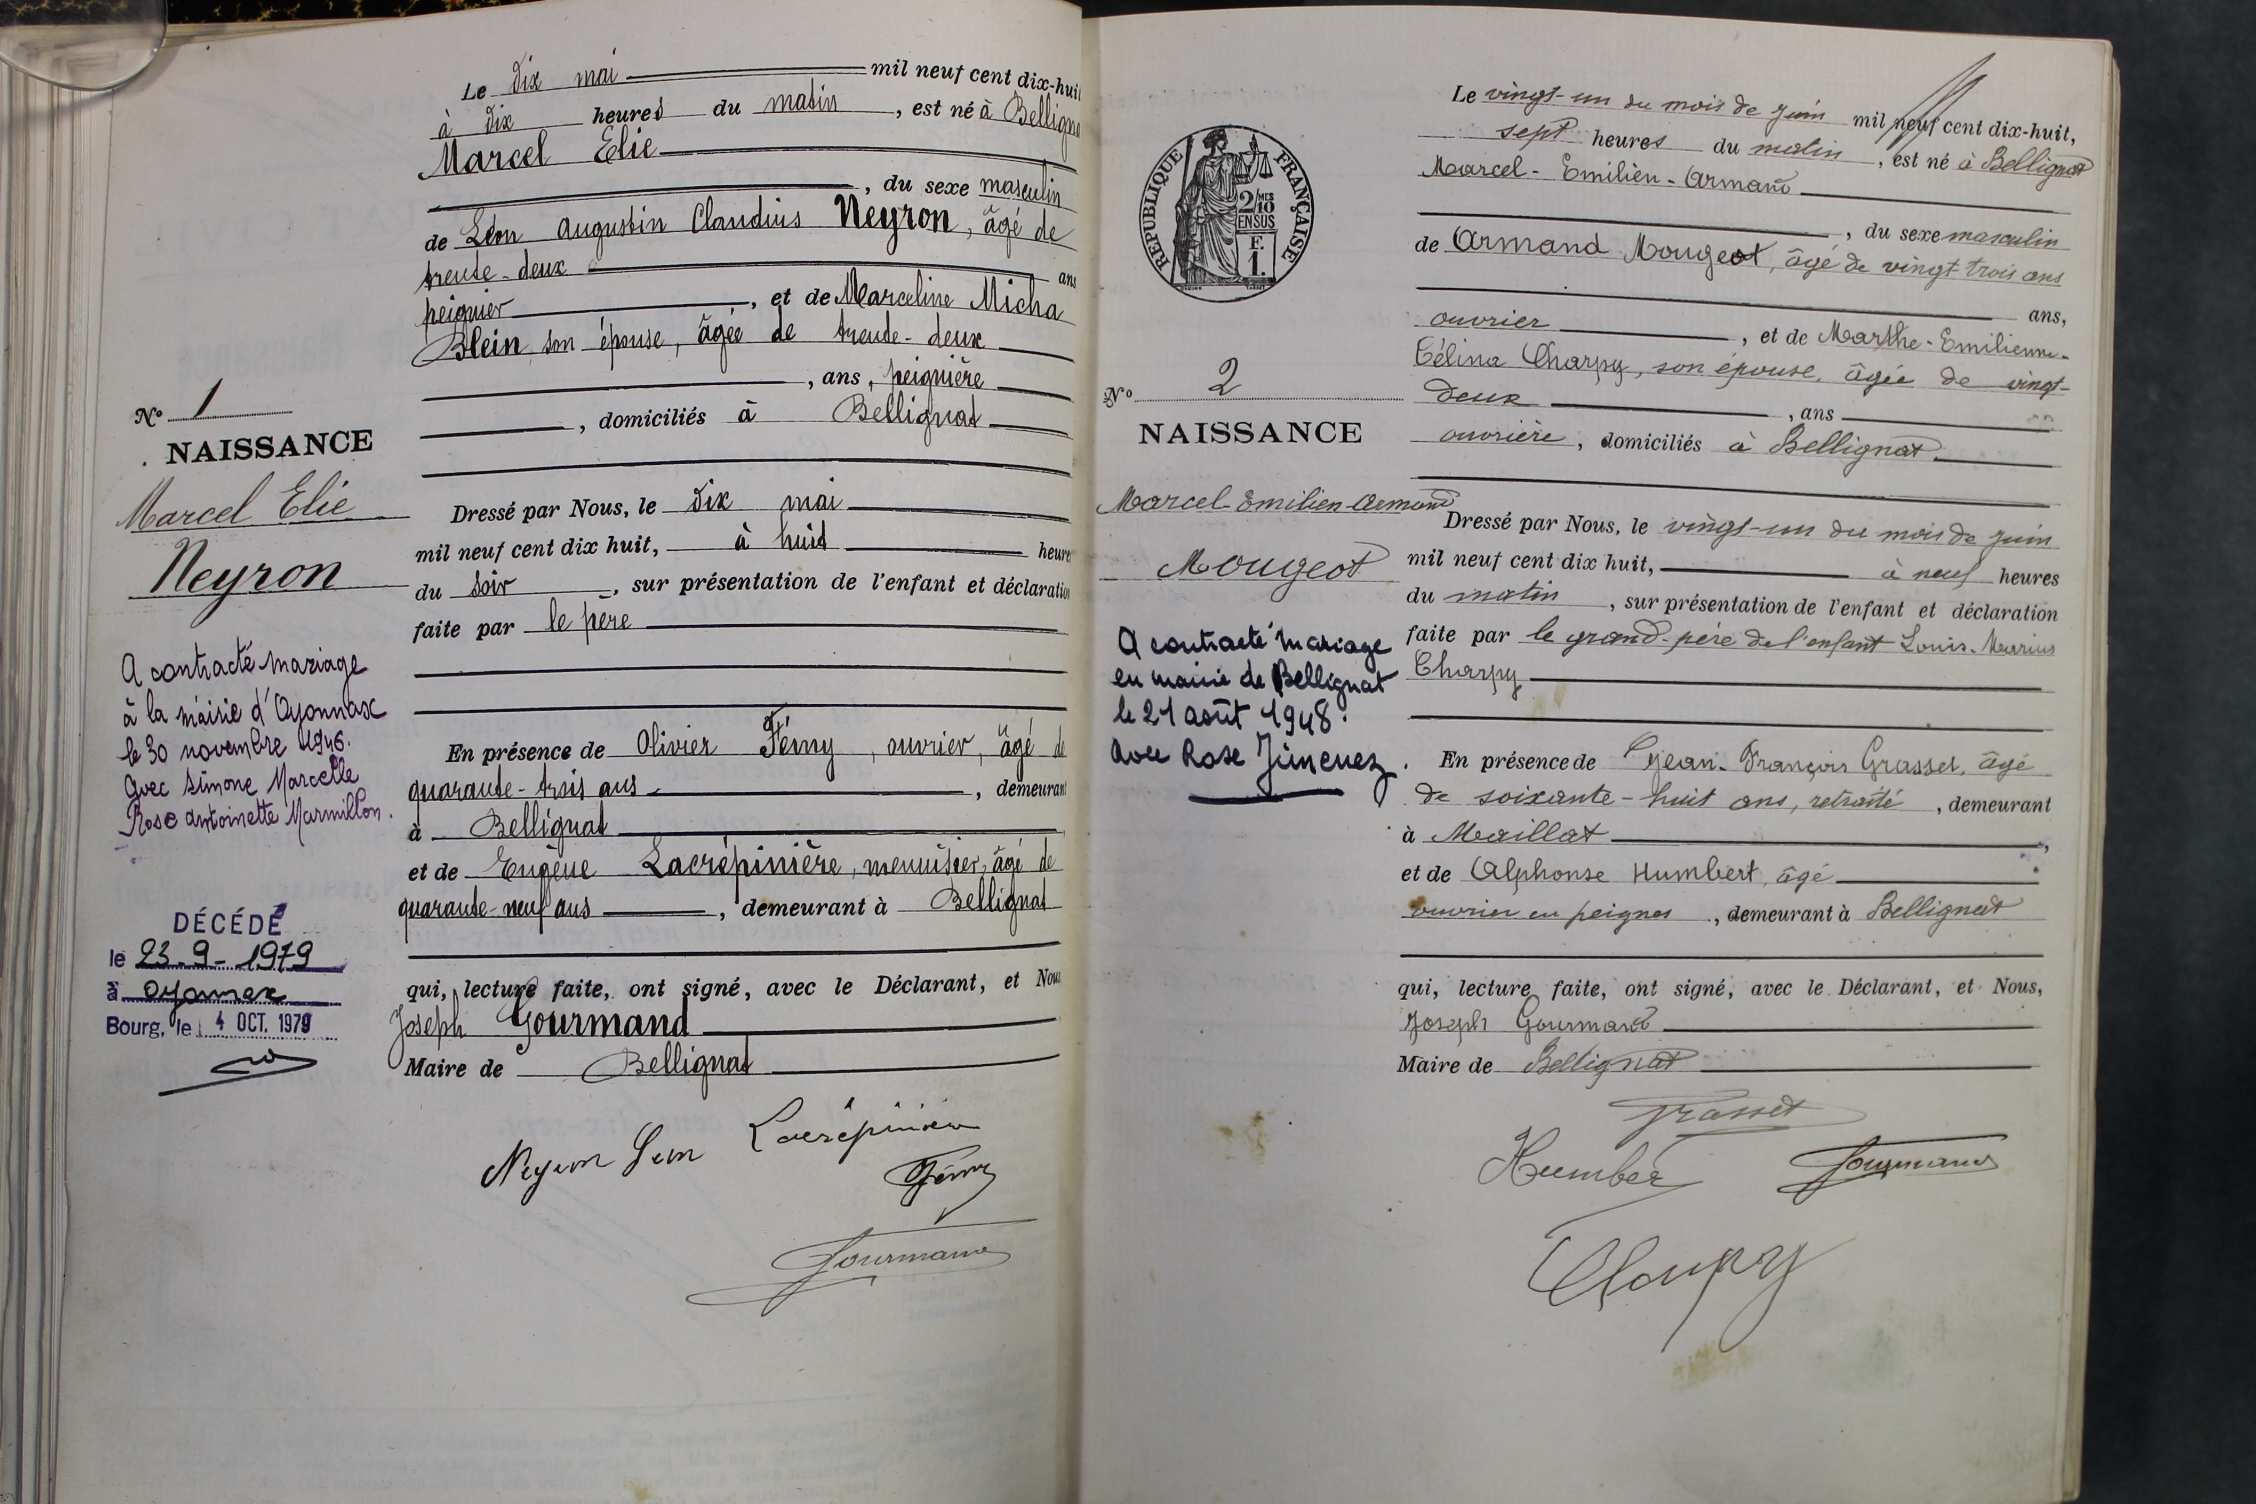 Le dix mai mil neuf cent dix-huit
à dix heures du matin, est né à Bellignat
Marcel Elie
, du sexe masculin
de Léon Augustin Claudius Neyron, âgé de
trente-deux ans
peignier, et de Marceline Micha
Blein, son épouse, âgée de trente-deux
, ans, peignière
, domiciliés à Bellignat
Nº 1
NAISSANCE
Marcel Elie
Neyron
Dressé par Nous, le dix mai
mil neuf cent dix huit, à huit heures
du soir, sur présentation de l'enfant et déclaration
faite par le père
A contracté mariage
à la mairie d'Oyonnax
le 30 novembre 1946.
avec Simone Marcelle
Rose Antoinette Marmillon.
En présence de Olivier Fémy, ouvrier, âgé de
quarante-trois ans, demeurant
à Bellignat
et de Eugène Lacrépinière, menuisier, âgé de
quarante-neuf ans, demeurant à Bellignat
DÉCÉDÉ
le 23-9-1979
à Oyonnax
Bourg, le 4 OCT. 1979
qui, lecture faite, ont signé, avec le Déclarant, et Nous
Joseph Gourmand
Maire de Bellignat
Neyron Léon Lacrépinière
Fémy
Gourmand
Le vingt-un du mois de juin mil neuf cent dix-huit,
sept heures du matin, est né à Bellignat
Marcel-Emilien-Armand
, du sexe masculin
de Armand Mougeot, âgé de vingt trois ans
ans,
ouvrier, et de Marthe-Emilienne-
Célina Charpy, son épouse, âgée de vingt-
deux, ans
ouvrière, domiciliés à Bellignat
RÉPUBLIQUE FRANÇAISE
2/10 MES
EN SUS
F.
1.
Nº 2
NAISSANCE
Marcel-Emilien-Armand
Mougeot
Dressé par Nous, le vingt-un du mois de juin
mil neuf cent dix huit, à neuf heures
du matin, sur présentation de l'enfant et déclaration
faite par le grand-père de l'enfant Louis-Marius
Charpy
A contracté mariage
en mairie de Bellignat
le 21 août 1948.
avec Rose Jimenez.
En présence de Jean-François Grasset, âgé
de soixante-huit ans, retraité, demeurant
à Maillat,
et de Alphonse Humbert, âgé
ouvrier en peignes, demeurant à Bellignat
qui, lecture faite, ont signé, avec le Déclarant, et Nous,
Joseph Gourmand
Maire de Bellignat
Grasset
Humbert Gourmand
Charpy